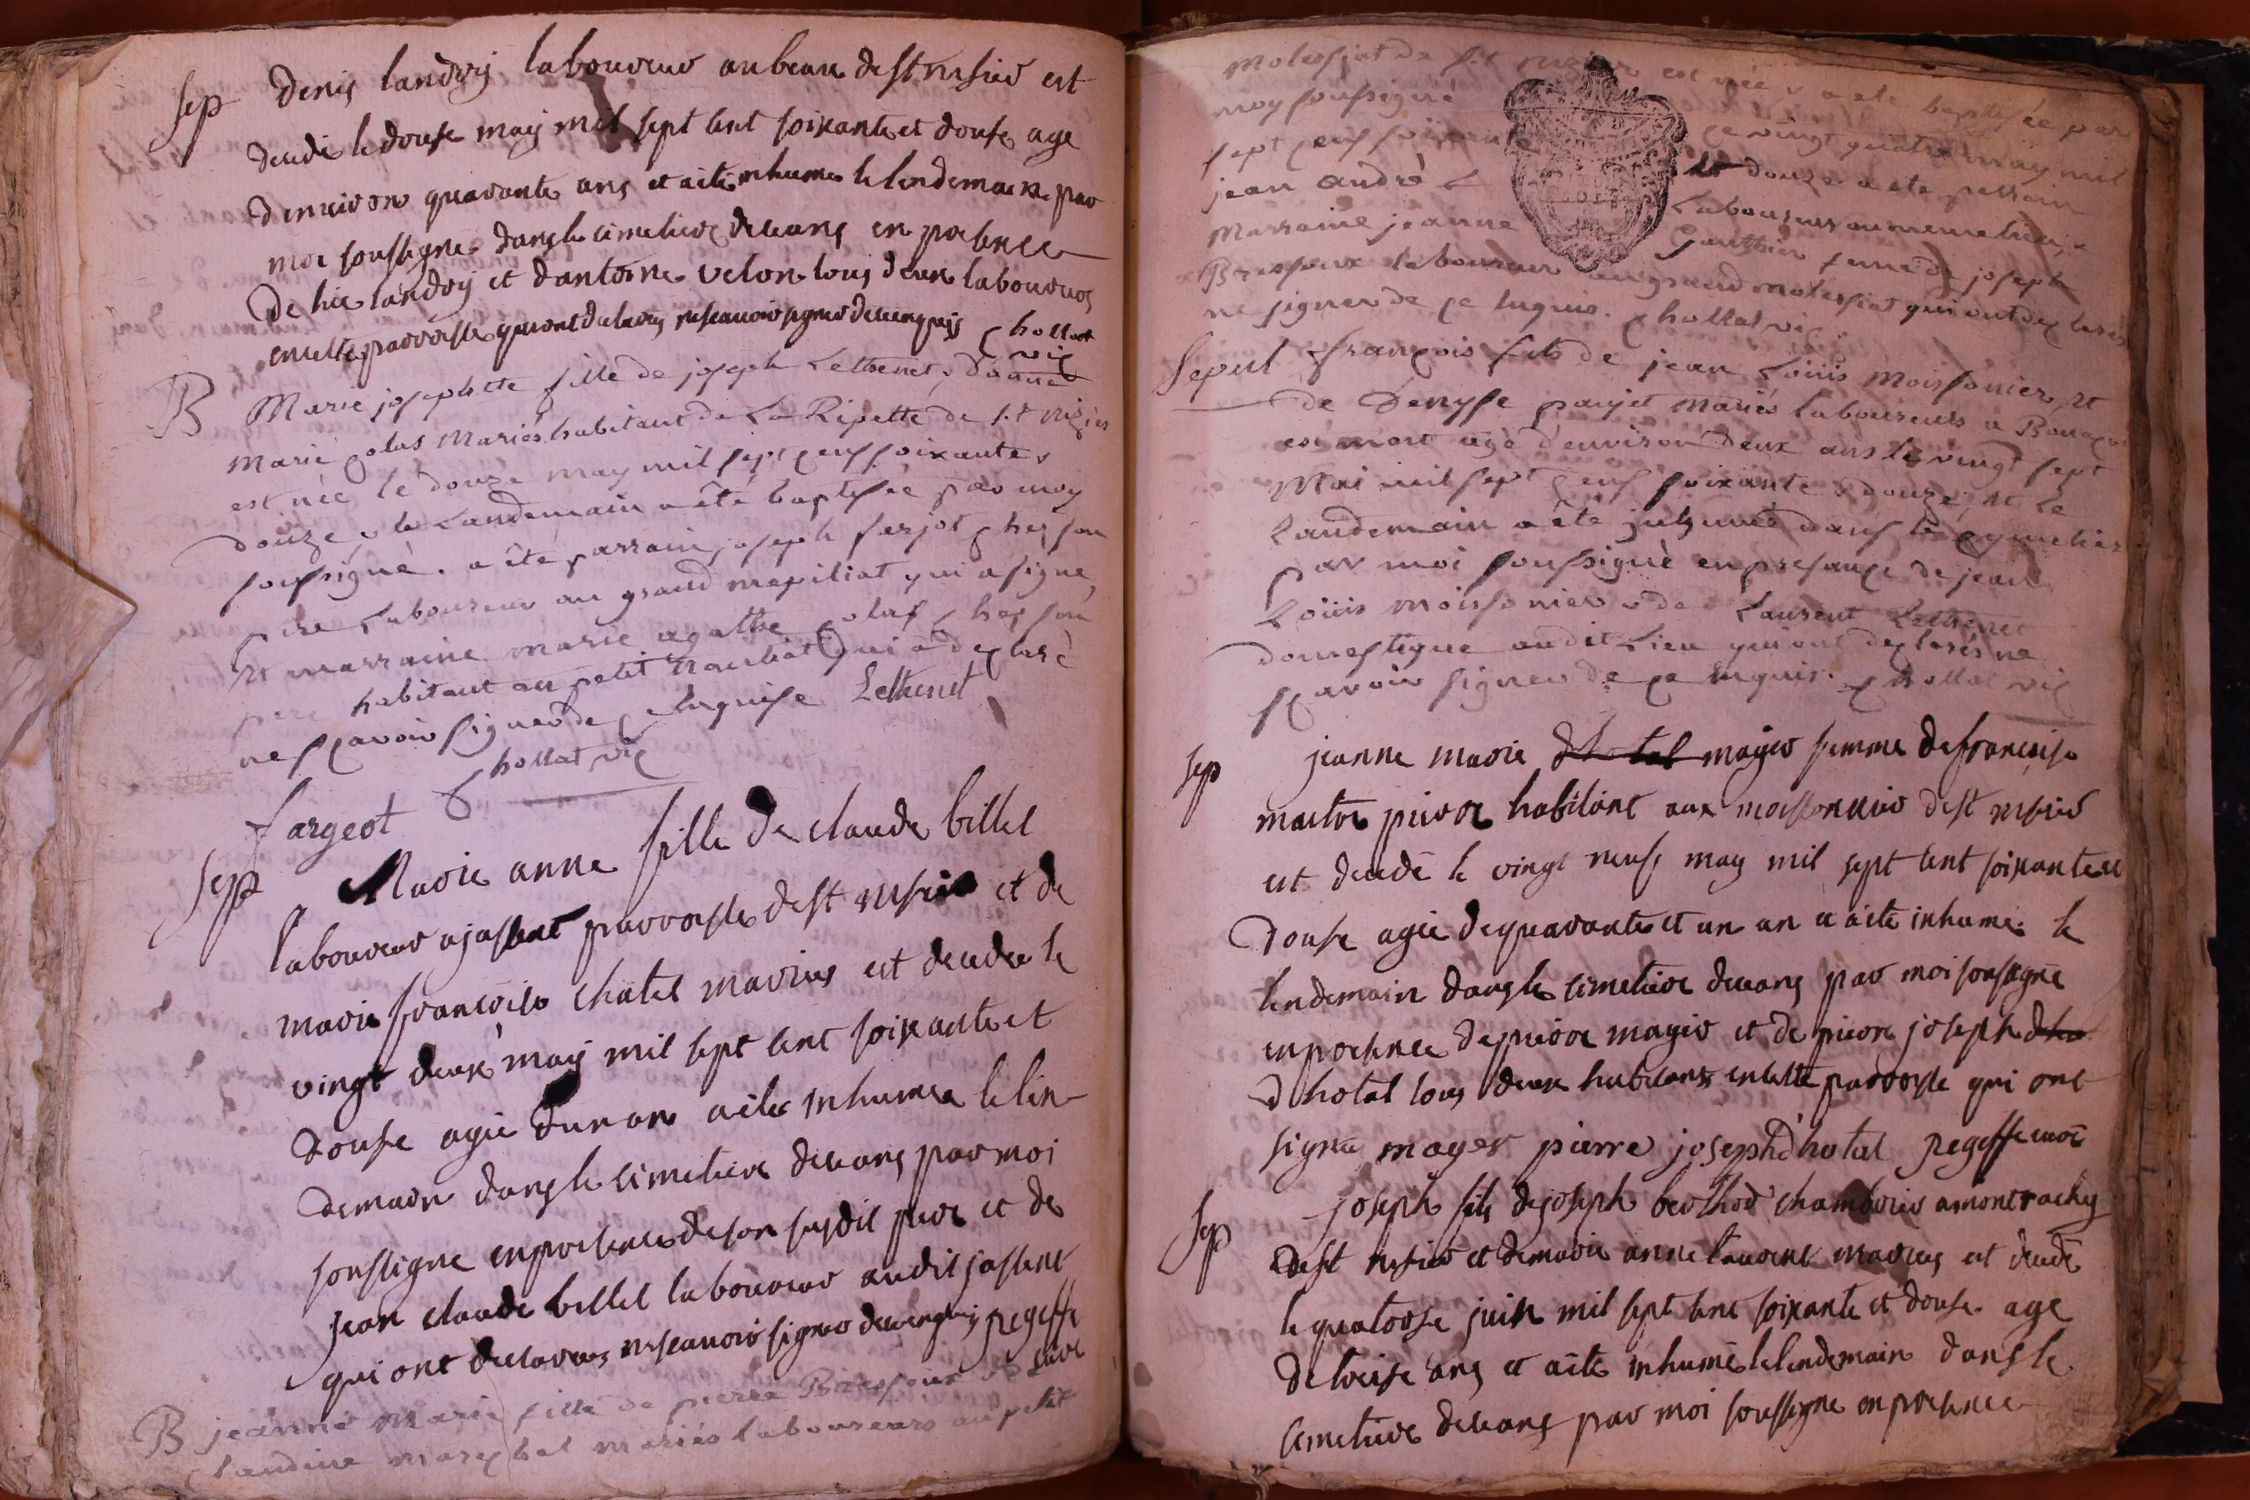 sep Denis landoy laboureur au beau de st nisier est
decede le douse may mil sept cent soixante et douse age
denviron quarante ans et a ete inhume le lendemain par
moi soussigne dans le cimetiere de ceans en presence
De landoy et dantoine velon tous deux laboureurs
en cette parroisse qui ont declares ne scavoir signer de ce enquis Chollat
vic
B Marie josephtte fille de joseph Lethenet et de
Marie Colas Mariés habitant de La Ripette de s.t nizier
est née le douze may mil sept cens soixante et
douze et le Landemain a été baptisée par moy
soussigné. a été parrain joseph farjot chez son
pere Laboureur au grand qui a signé,
et marraine marie agathe Colas chez son
pere habitant au petit qui a declaré
ne sçavoir signer de ce Enquise Lethenet
Chollat vic
fargeot
sep Marie anne fille de claude billet
laboureur a parroisse de st nisier et de
marie francoise chatel maries est decedee le
vingt deux may mil sept cent soixante et
douse agée dun an a ete inhumee le len
demain dans le cimetiere de ceans par moi
soussigne en presence de son susdit pere et de
jean claude billet laboureur audit
qui ont declares ne scavoir signer de ce enquis pegeffe
curé
B jeanne Marie fille de pierre et de
Claudine marechal mariés laboureurs au petit
de s.t nizier est née et a ete baptisée par
moy soussigné ce vingt quatre may mil
sept cens soixante et douze a ete parrain
jean andré Laboureur au meme lieu, et
Marraine jeanne Gauthier femme de joseph
laboureur au grand qui ont declarés
ne signer de ce Enquis. Chollat vic.
Sepul françois fils de jean Louis Moissonier, et
de Denyse paujet Mariés laboureurs a
est mort agé d'environ deux ans le vingt sept
Mai mil sept cens soixante et douze, et Le
Landemain a été inhumé dans le cymetiere
par moi soussigné en presance de jean
Loüis Moissonier et de Laurent Lethenet
domestique au dit Lieu qui ont declarés ne
sçavoir signer de ce enquis. Chollat vic
sep jeanne marie dhotal mayer femme de francois
maitre pierre habitant aux moissonnier de st nisier
est decedé le vingt neuf may mil sept cent soixante et
douse agée de quarante et un an et a ete inhumé le
lendemain dans le cimetiere de ceans par moi soussigné
en presence de pierre mayer et de pierre joseph dho
dhotal tous deux habitans en cette parroisse qui ont
signé mayer pierre joseph dhotal pegeffe curé
Sep joseph fils de joseph berthod a
de st nisier et de marie anne laurent maries est decedé
le quatorse juin mil sept cent soixante et douse age
de treise ans et a ete inhumé le lendemain dans le
cimetiere de ceans par moi soussigne en presence